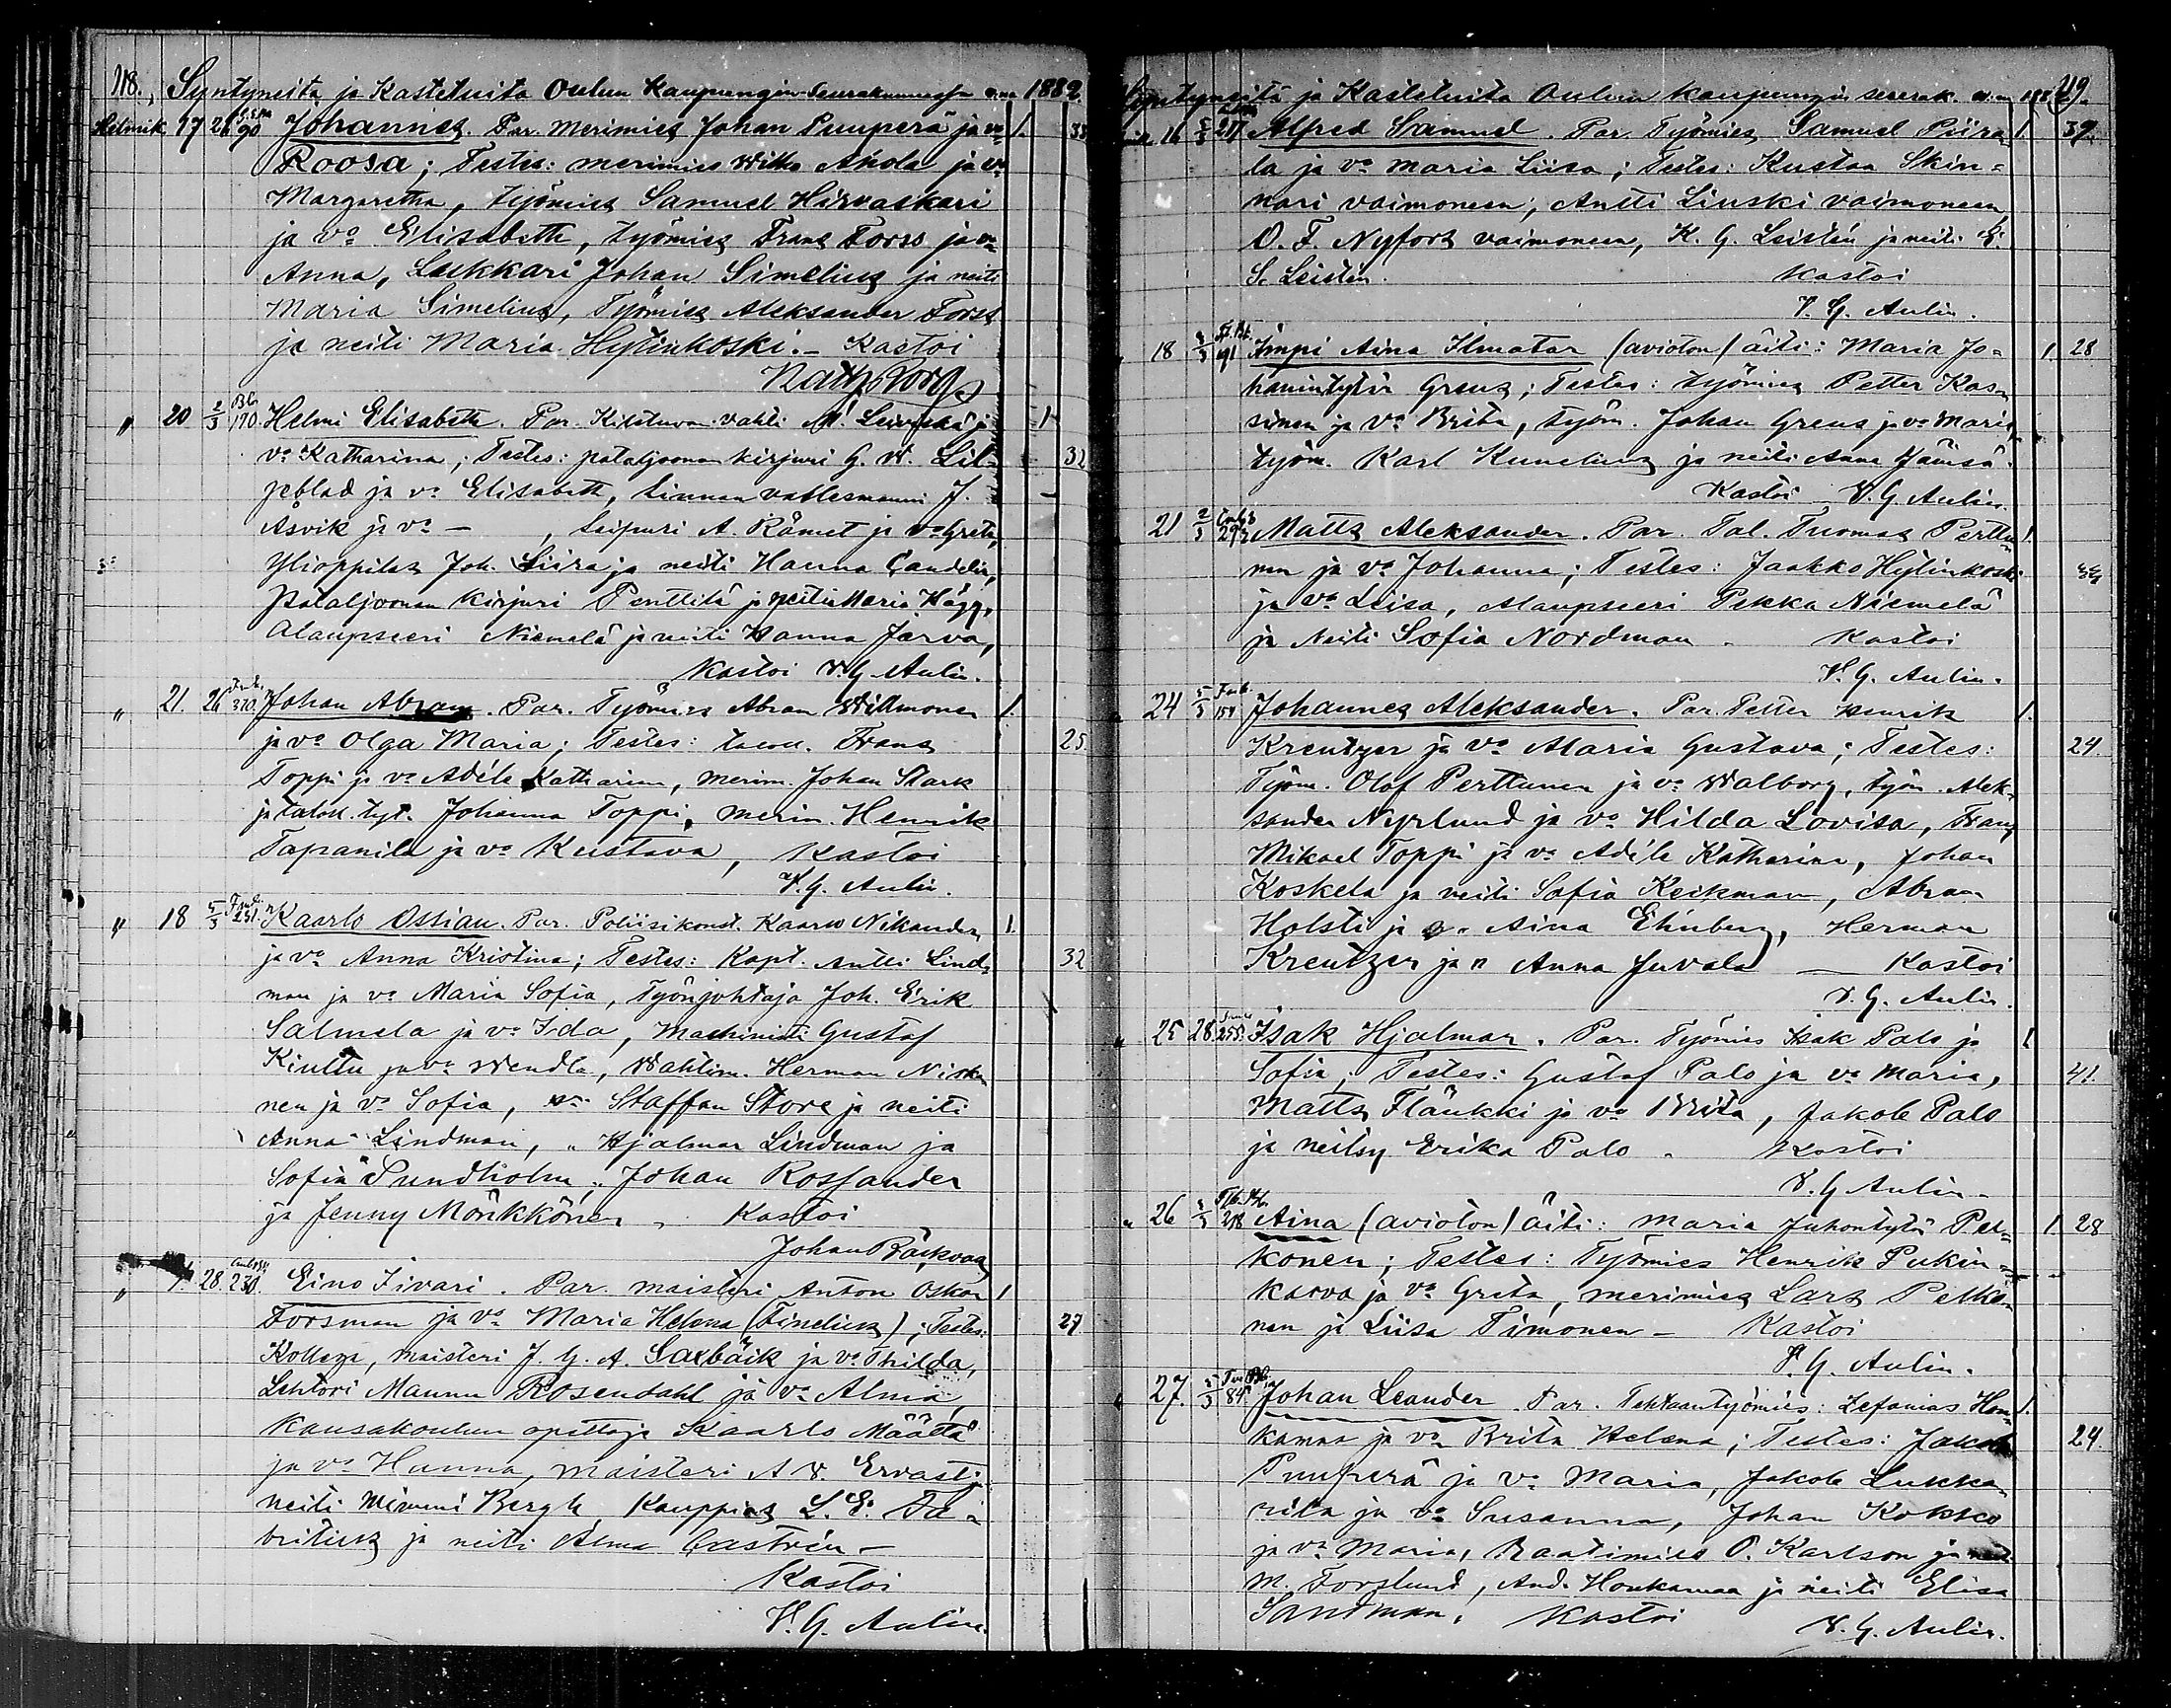 118. Syntyneitä ja Kastetuita Oulun Kaupungin Seurakunnassa v:na 1882.
Helmik. 17 26 90 Johannes. Par. Merimies Johan Puuperä ja vo 1. 33
Roosa; Testes: merimies Wilho Ahola ja vo
Margaretha, työmies Samuel Hirvaskari
ja vo Elisabeth, työmies Frans Forss ja vo
Anna, Lukkari Johan Simelius ja neiti
Maria Simelius, Työmies Aleksander Forss
ja neiti Maria Hytinkoski. - Kastoi
" 20 2/3 170. Helmi Elisabeth. Par. Kihtuvan vahti M. Leiviskä ja 1
vo Katharina; Testes: pataljoonan kirjuri G. W. Lil- 32
jeblad ja vo Elisabeth, linnan vatlesmanni J.
Åsvik ja vo - , leipuri A. Rämet ja vo Greta,
Ylioppilas Joh. Liira ja neiti Hanna Candelin,
Pataljoonan Kirjuri Penttilä ja neiti Maria Hägg,
Alaupseeri Niemelä ja neiti Hanna Järva,
Kastoi V. G. Aulin.
" 21. 26 370. Johan Abram. Par. Työmies Abram Willmonen 1.
ja vo Olga Maria; Testes: talon. Frans 25
Toppi ja vo Adéle Katharina, merim. Johan Stark
ja talon. tyt. Johanna Toppi, merim. Henrik
Tapanila ja vo Kustava, Kastoi
V. G. Aulin.
" 18 5/3 231. Kaarlo Ossian. Par. Poliisikonst. Kaarlo Nikander 1.
ja vo Anna Kristina; Testes: Kapt. Antti Lind- 32
man ja vo Maria Sofia, Työnjohtaja Joh. Erik
Salmela ja vo Ida, Machinisti Gustaf
Kiuttu ja vo Wendla, Wahtim. Herman Niska-
nen ja vo Sofia, Staffan Store ja neiti
Anna Lindman, " Hjalmar Lindman ja
Sofia Sundholm, " Johan Rossander
ja Jenny Mönkkönen, Kastoi
Johan Bäckvall
" 1. 28. 230. Eino Iivari. Par. maisteri Anton Oskar 1
Forsman ja vo Maria Helena (Finelius); Testes: 27
Kollega, maisteri J. G. A. Saxbäck ja vo Thilda,
Lehtori Maunu Rosendahl ja vo Alma,
Kansakoulun opettaja Kaarlo Määttä
ja vo Hanna, maisteri A. V. Ervasti ja
neiti Mimmi Bergh, Kauppias L. E. Fa-
britius ja neiti Alma Castrén -
Kastoi
V. G. Aulin.
Syntyneitä ja Kastetuita Oulun kaupungin seurak. v:na 1882 119.
16 5/3 Alfred Samuel. Par. Työmies Samuel Piira- 1 39
la ja vo Maria Liisa; Testes: Kustaa Skin-
nari vaimoneen, Antti Liuski vaimoneen,
O. F. Nyfors vaimoneen, K. G. Leistén ja neiti E.
S. Leistén. Kastoi
V. G. Aulin.
" 18 91 Impi Aina Ilmatar (avioton) äiti: Maria Jo- 1 28
hanintytär Greus; Testes: työmies Petter Kos-
sinen ja vo Brita, työm. Johan Greus ja vo Maria,
työm. Karl Kunelius ja neiti Anna Jämsä.
Kastoi V. G. Aulin.
" 21 2/3 293 Matts Aleksander. Par. Tal. Tuomas Perttu- 1.
nen ja vo Johanna; Testes: Jaakko Hytinkoski
ja vo Liisa, Alaupseeri Pekka Niemelä
ja Neiti Sofia Nordman. Kastoi
V. G. Aulin.
" 24 5/3 Johannes Aleksander. Par. Petter Henrik 1.
Kreutzer ja vo Maria Gustava; Testes: 24.
Työm. Olof Perttunen ja vo Walborg, työm. Alek-
sander Nyrlund ja vo Hilda Lovisa, Frans
Mikael Toppi ja vo Adéle Katharina, Johan
Koskela ja neiti Sofia Keckman, Abram
Holsti ja n. Aina Ehnberg, Herman
Kreutzer ja n Anna Juvala - Kastoi
V. G. Aulin.
" 25 28 255. Isak Hjalmar. Par. Työmies Isak Palo ja 1
Sofia; Testes: Gustaf Palo ja vo Maria, 41.
Matts Fläukki ja vo Brita, Jakob Palo
ja neitsy Erika Palo. Kastoi
V. G. Aulin.
" 26 218 Aina (avioton) äiti: Maria Juhontytär Pel- 1 28
konen; Testes: Työmies Henrik Pukin-
karva ja vo Greta, merimies Lars Pelko-
nen ja Liisa Timonen - Kastoi
V. G. Aulin.
" 27. 84 Johan Leander. Par. Tehtaantyömies: Zefanias Hon- 1.
kamaa ja vo Brita Helena; Testes: Jakob 24.
Puuperä ja vo Maria, Jakob Lukka-
rila ja vo Susanna, Johan Kokko
ja vo Maria, Raatimies O. Karlson ja neiti
M. Forslund, And. Honkamaa ja neiti Elisa
Sandman, Kastoi V. G. Aulin.